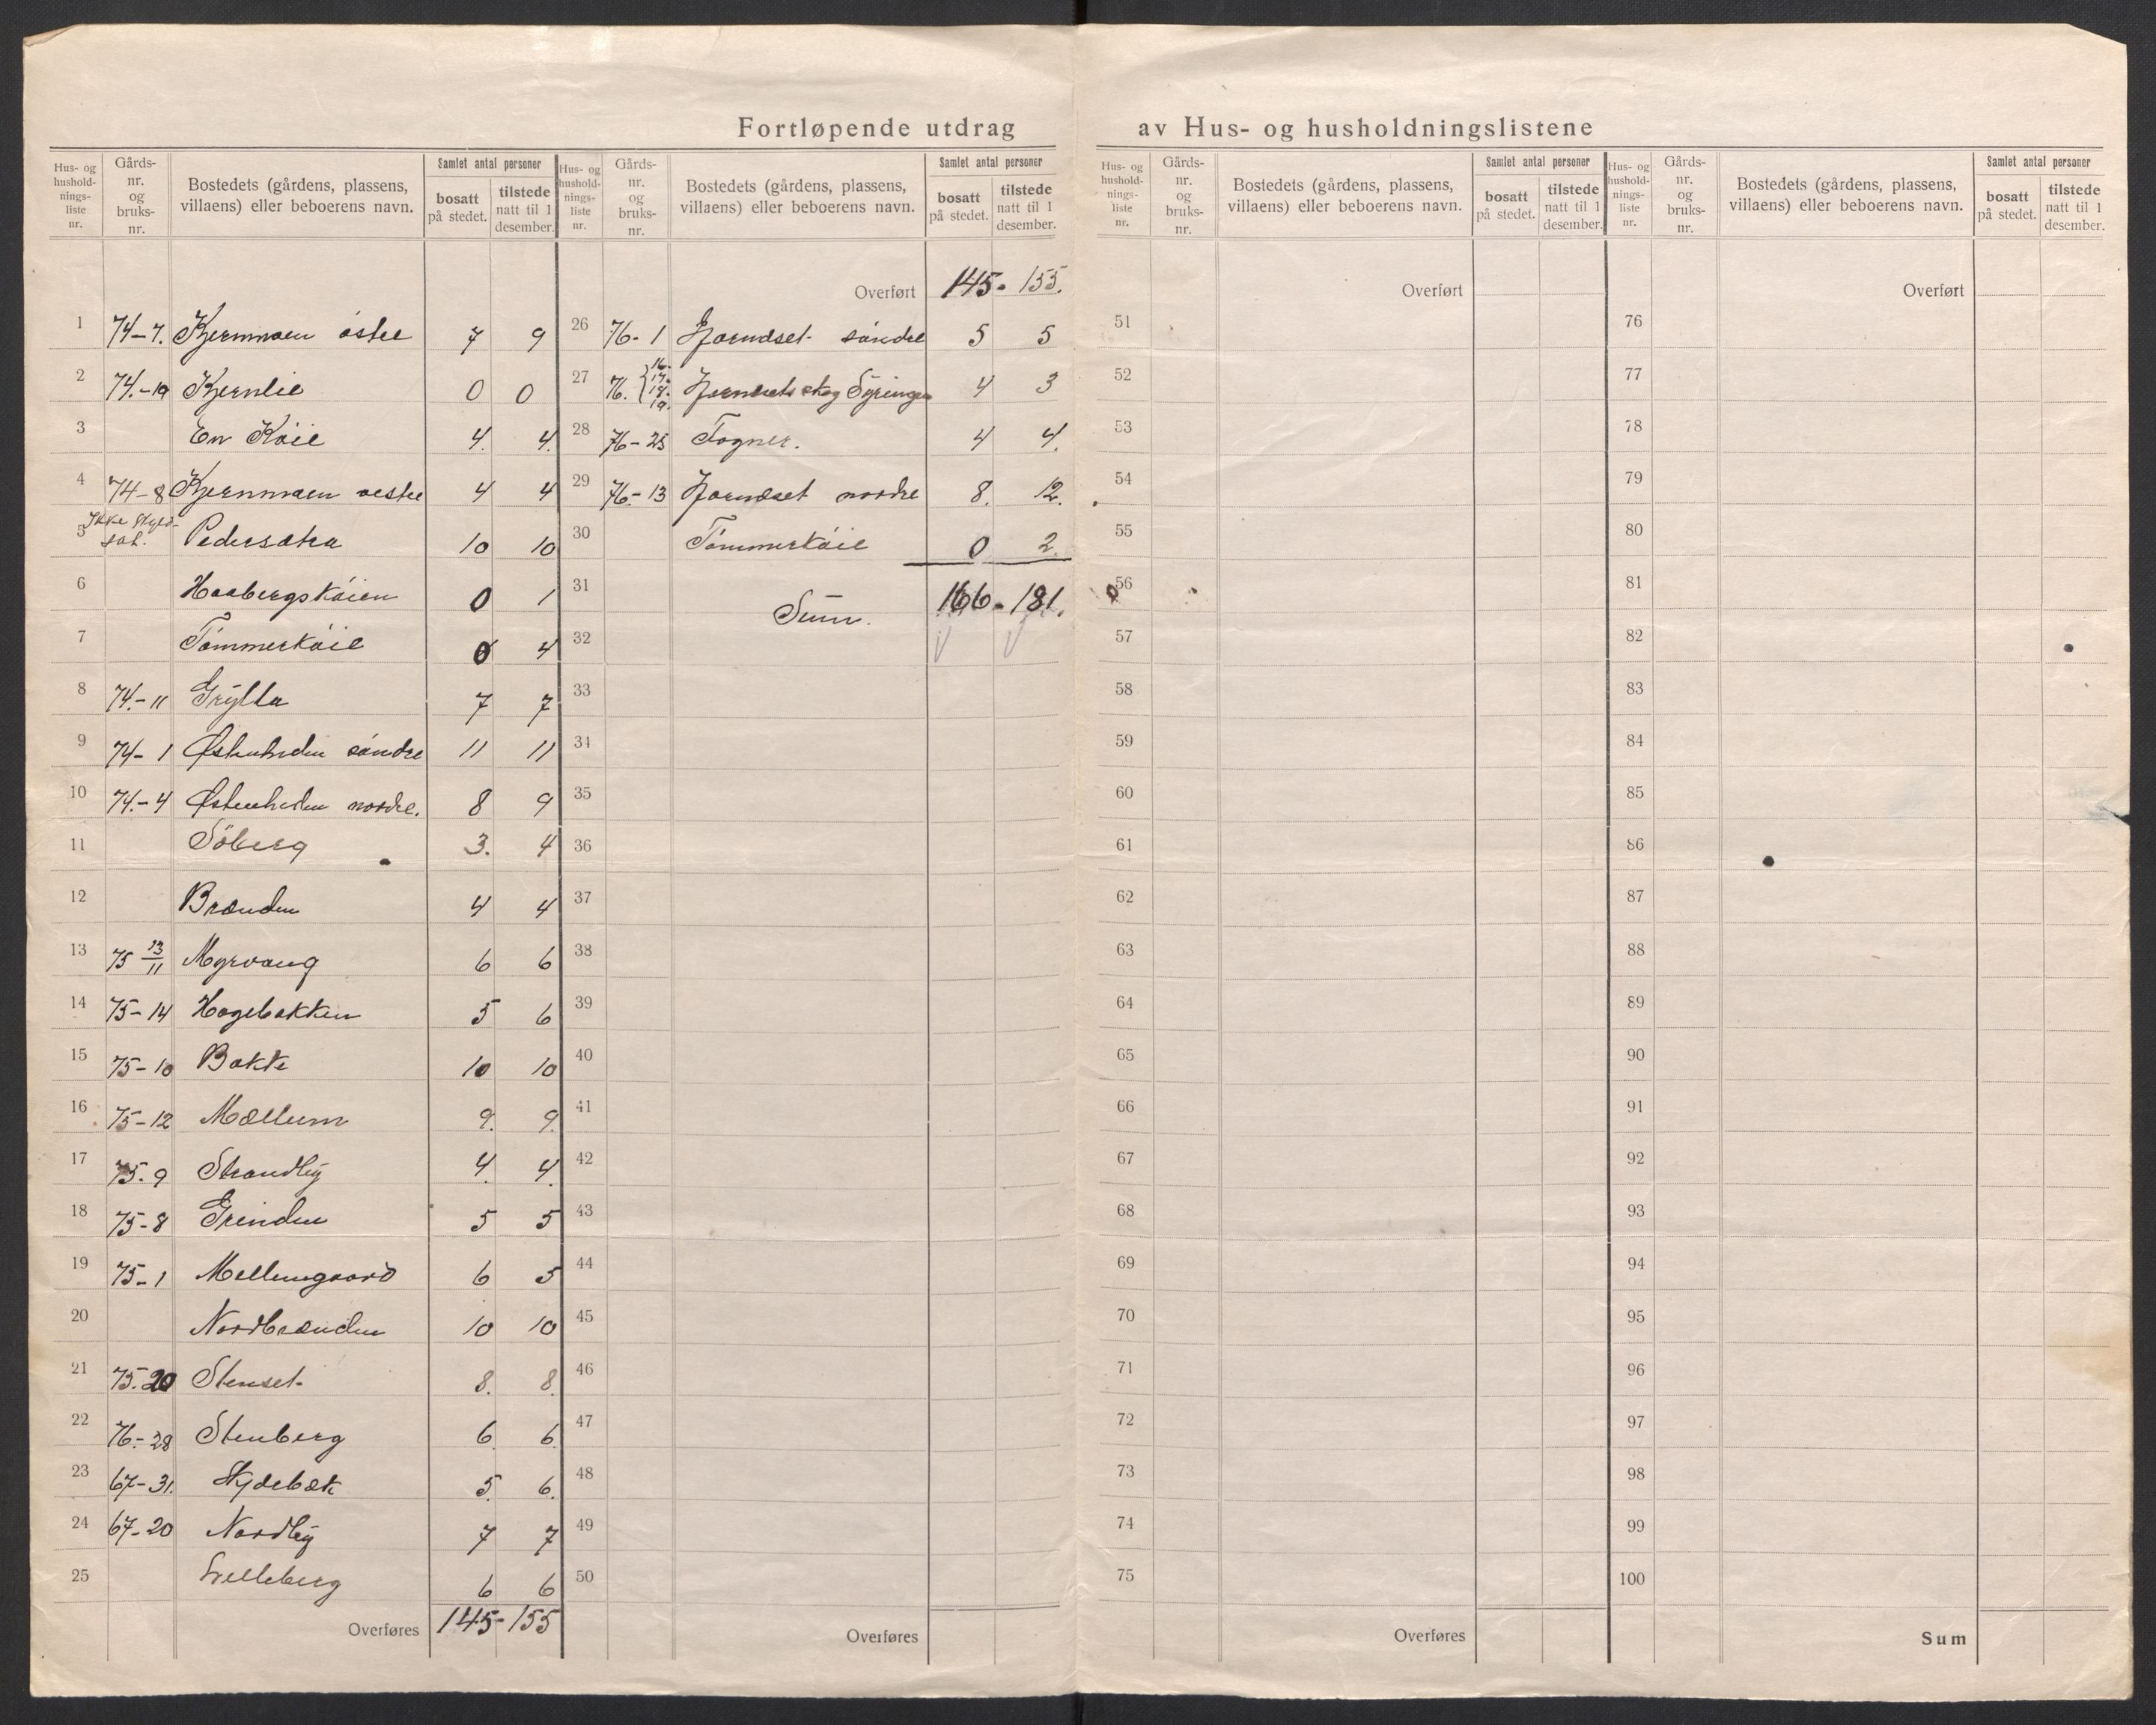 Fortløpende utdrag av Hus- og husholdningslistene
Hus- og hushold- nings- liste nr. Gårds- nr. og bruks- nr. Bostedets (gårdens, plassens, villaens) eller beboerens navn. Samlet antal personer bosatt på stedet. tilstede natt til 1 desember.
1 74-7. Kjernmoen östre 7 9
2 74.-19 Kjernlie 0 0
3 En Köie 4. 4.
4 74-8 Kjernmoen vestre 4 4
5 Ikke Skyld- sat. Pedersætra 10 10
6 Haabergsköien 0 1
7 Tömmerköie 0 4
8 74.-11 Grÿtta 7 7
9 74-1 Østenheden söndre 11 11
10 74.-4 Østenheden nordre. 8 9
11 Söberg 3. 4
12 Brænden 4 4
13 75 13/11 Myrvang 6 6
14 75-14 Hagebakken 5 6
15 75-10 Bakke 10 10
16 75-12 Mællum 9. 9.
17 75.9 Strandbÿ 4. 4.
18 75-8 Grinden 5 5
19 75-1 Mellemgaard 6 5
20 Nordbrænden 10 10
21 75.20 Stenset 8. 8.
22 76-28 Stenberg 6 6
23 67-31. Skydebæk 5. 6.
24 67-20 Nordbÿ 7 7
25 Lilleberg 6 6
Overføres 145-155
Hus- og hushold- nings- liste nr. Gårds- nr. og bruks- nr. Bostedets (gårdens, plassens, villaens) eller beboerens navn. Samlet antal personer bosatt på stedet. tilstede natt til 1 desember.
Overført 145. 155.
26 76-1 söndre 5 5
27 76. 16. 17. 18. 19. 4 3
28 76-25 Togner. 4 4.
29 76-13 nordre 8. 12.
30 Tömmerköie 0 2.
31 Sum. 166. 181.
32
33
34
35
36
37
38
39
40
41
42
43
44
45
46
47
48
49
50
Overføres
Hus- og hushold- nings- liste nr. Gårds- nr. og bruks- nr. Bostedets (gårdens, plassens, villaens) eller beboerens navn. Samlet antal personer bosatt på stedet. tilstede natt til 1 desember.
Overført
51
52
53
54
55
56
57
58
59
60
61
62
63
64
65
66
67
68
69
70
71
72
73
74
75
Overføres
Hus- og hushold- nings- liste nr. Gårds- nr. og bruks- nr. Bostedets (gårdens, plassens, villaens) eller beboerens navn. Samlet antal personer bosatt på stedet. tilstede natt til 1 desember.
Overført
76
77
78
79
80
81
82
83
84
85
86
87
88
89
90
91
92
93
94
95
96
97
98
99
100
Sum